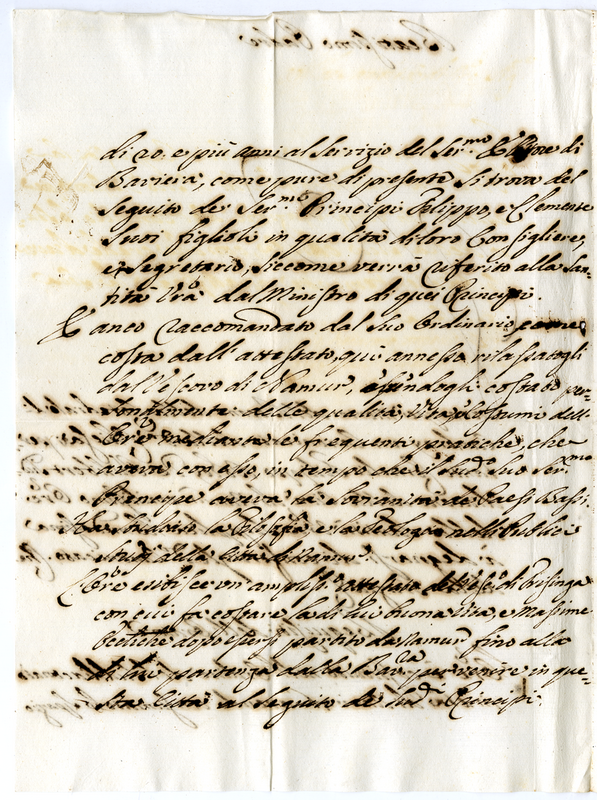 di 20. e più anni al servizio del Ser.mo Elettore di
Baviera, come pure di presente si trova del
seguito de Ser.mi Principi Filippo, e Clemente
suoi figlioli in qualità di loro Consigliere,
et segretario, siccome verrà riferito alla San-
tità Vra dal Ministro di quei Principi.
È anco raccomandato dal suo Ordinario, come
costa dall' attestato qui annesso rilasciatogli
dal Vescovo di Namur, costato per-
delle qualità, vita e costumi dell'
Ore mediante le frequenti pratiche, che
aveva con esso, in tempo che il sud.o suo Ser.mo
Principe aveva la Sovranità de Paesi Bassi.
Ha studiato la Filosofia e la Teologia nelli Publici
studij della Città di Namur.
L'Ore esibisce un' ampliss.o attestato del Vesc.o di Frisinga
con cui fa costare la di lui buona vita, e Massime
Cattoliche dopo essersi partito da Namur fino alla
di lui partenza dalla Bav.ra per venire in que-
sta Città al seguito de sud.i Principi.